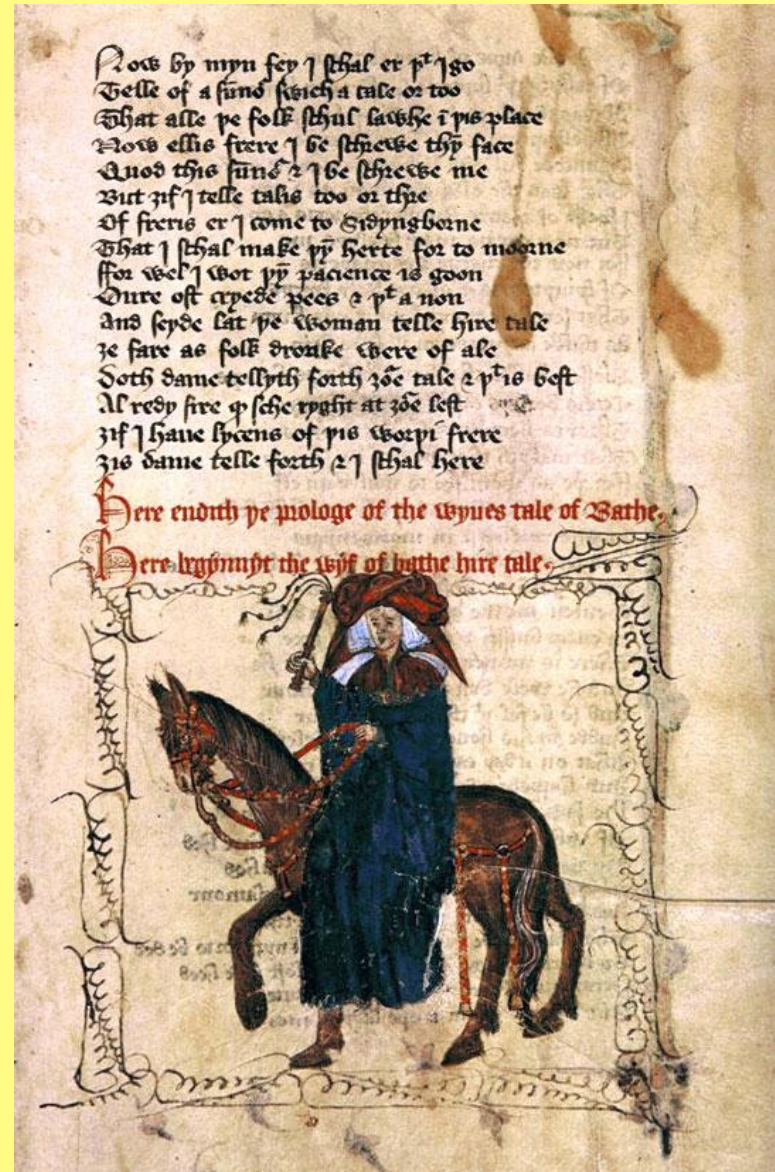 Now by myn fey I schal er þͭ I go
Telle of a sūnō swich a tale or too
That alle þe folk schul lawhe ī þis place
Now ellis frere I be schrewe thy face
Quod this sūnō ⁊ I be schrewe me
But ȝif I telle talis too or thre
Of freris er I come to Sidyngborne
That I schal make þȳ herte for to moorne
ffor wel I wot þȳ pacience is goon
Oure ost cryede pees ⁊ þͭ a non
And seyde lat þe woman telle hire tale
ȝe fare as folk dronke were of ale
Doth dame tellyth forth ȝōe tale ⁊ þͭ is best
Al redy sire qͦ sche ryght at ȝōe lest
ȝif I haue lycens of þis worþi frere
ȝis dame telle forth ⁊ I schal here
Here endith þe prologe of the wyues tale of Bathe.
Here begynnyþt the wyf of bathe hire tale.